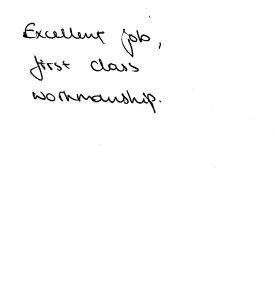 Excellent job,
first class
workmanship.